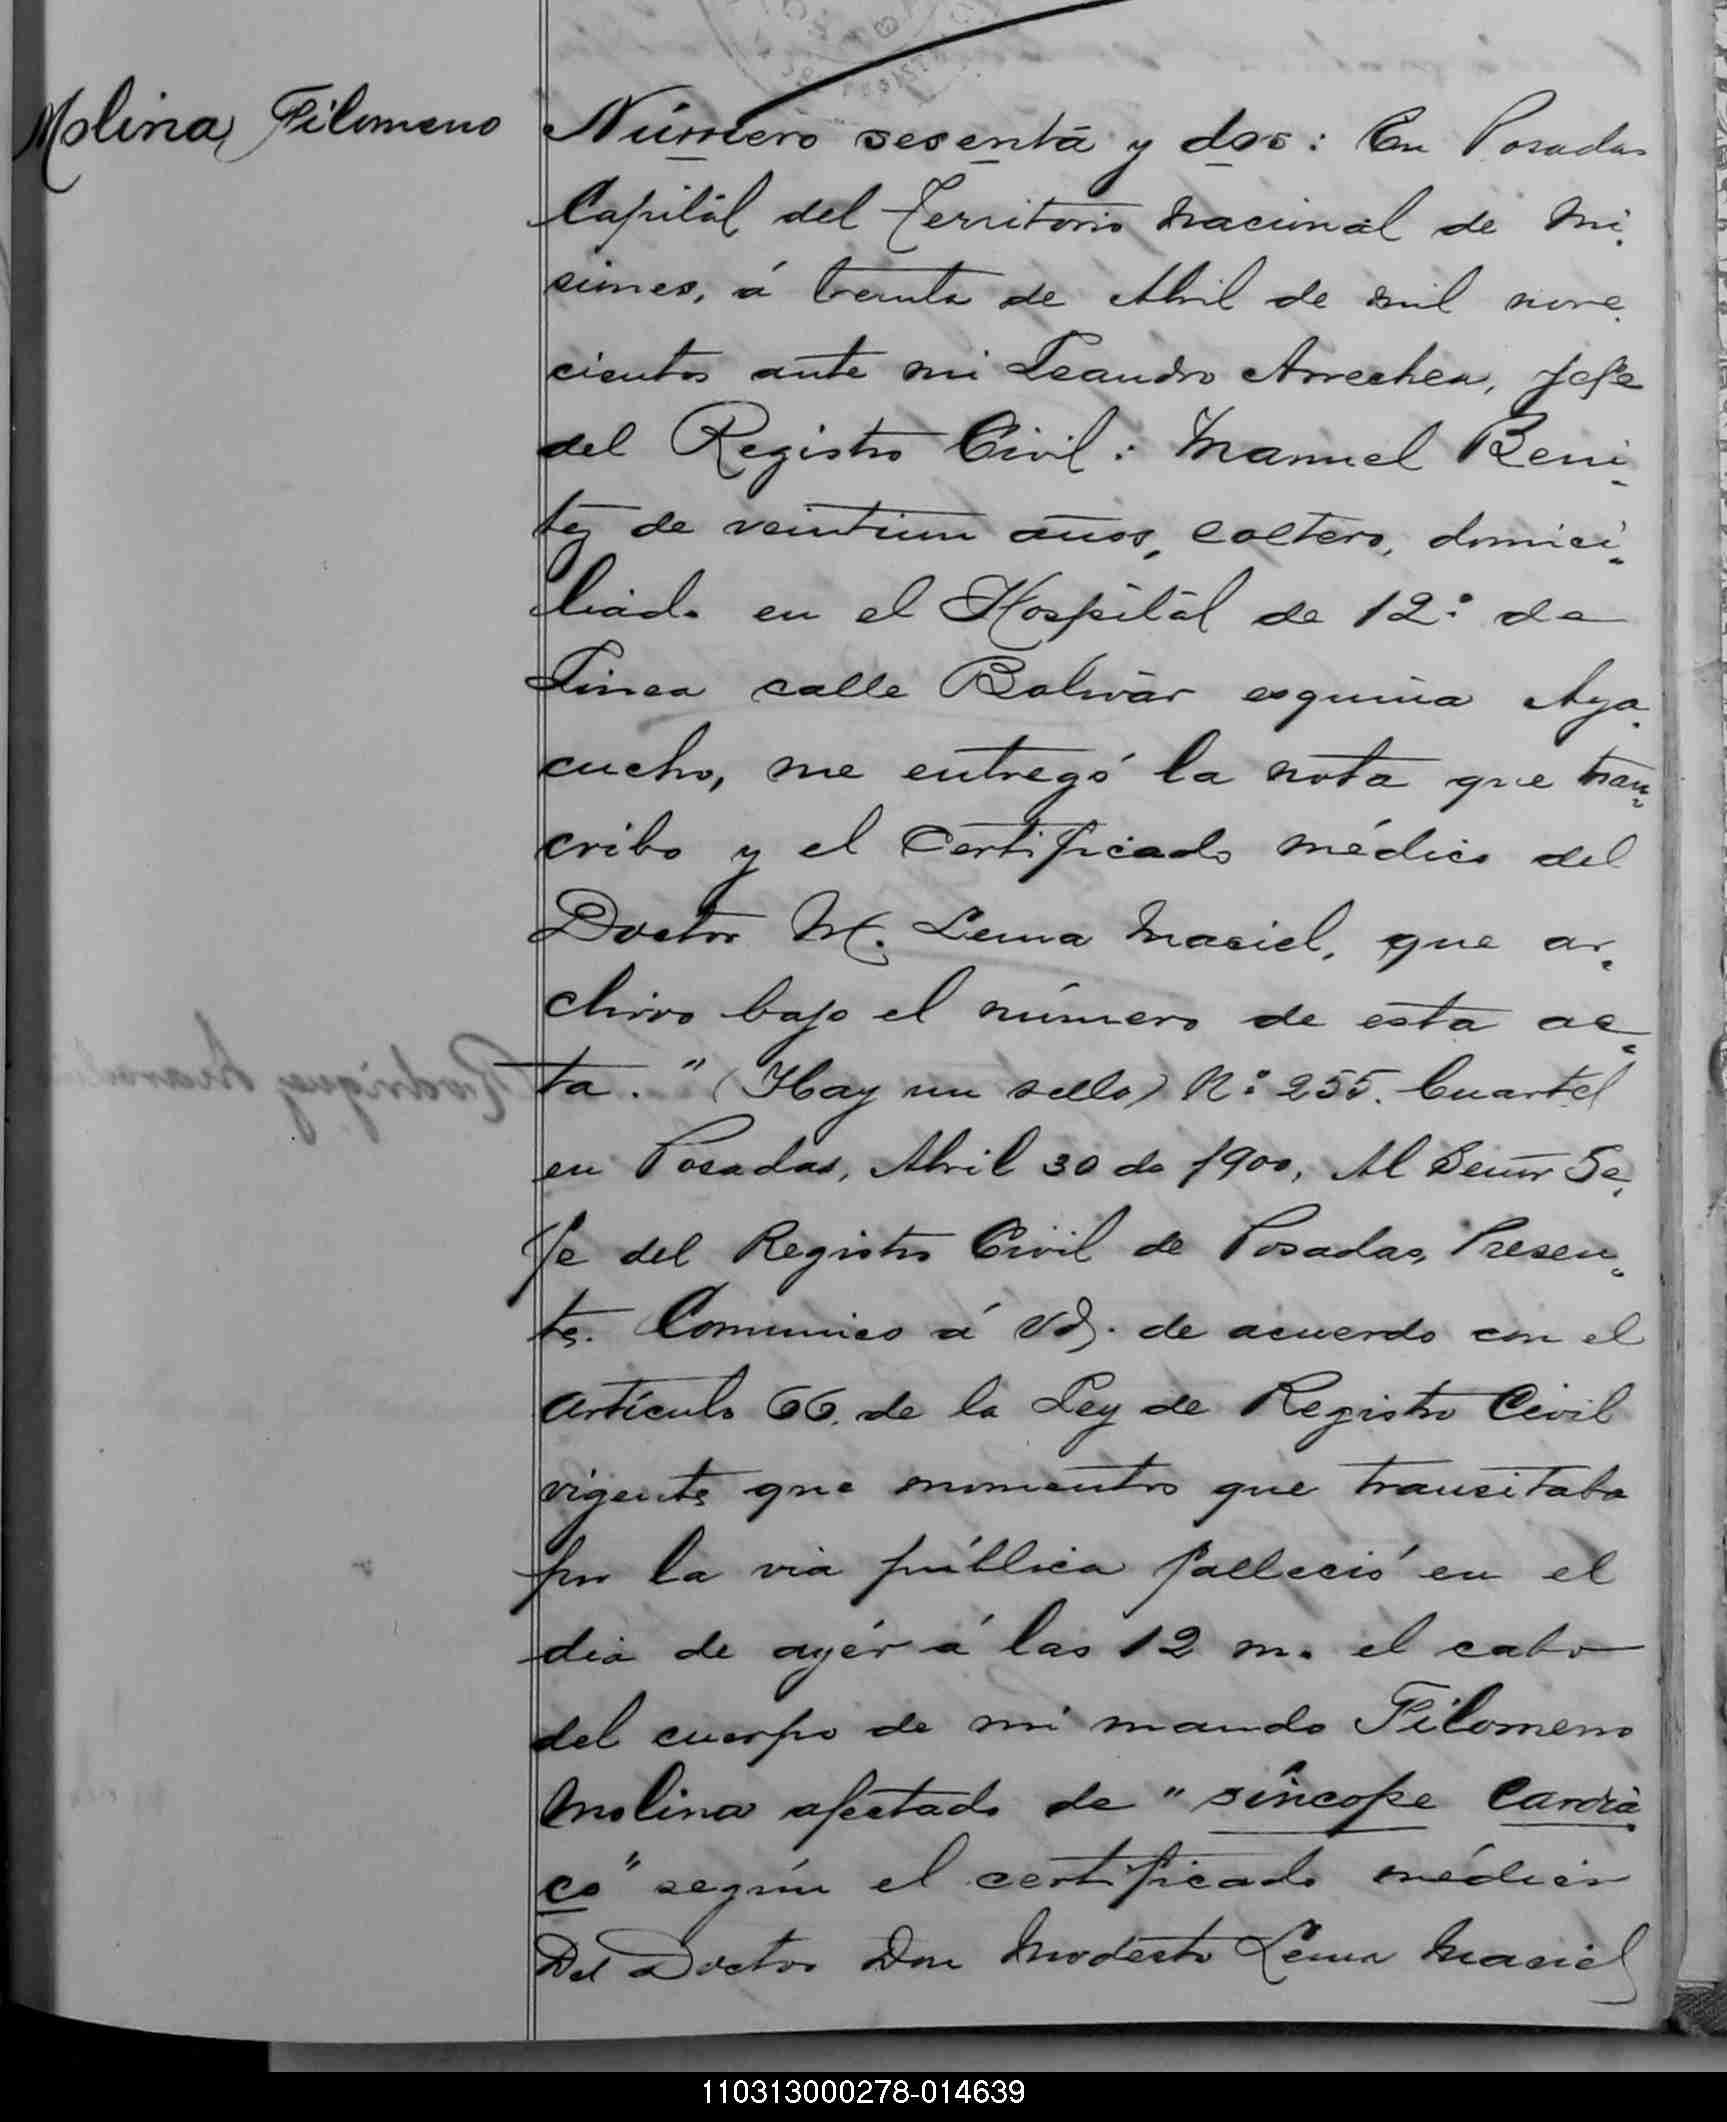 Molina Filomeno
Número sesenta y dos: En Posadas
Capital del Territorio Nacional de Mi-
siones, á treinta de Abril de mil nove-
cientos ante mi Leandro Arrechea, Jefe
del Registro Civil: Manuel Beni-
tez de veintiun años, soltero, domici-
liado en el Hospital de 12º de
Linea calle Bolivar esquina Aya-
cucho, me entregó la nota que tran-
cribo y el certificado médico del
Doctor M. Lema Maciel, que ar-
chivo bajo el número de esta ac-
ta. " (Hay un sello) Nº 255. Cuartel
en Posadas, Abril 30 de 1900, Al Señor Je-
fe del Registro Civil de Posadas, Presen-
te. Comunico á Vd. de acuerdo con el
artículo 66. de la Ley de Registro Civil
vigente que momentos que transitaba
por la via pública falleció en el
dia de ayér á las 12 m. el cabo
del cuerpo de mi mando Filomeno
Molina afectado de "síncope cardia-
co" según el certificado médico
Del Doctor Don Modesto Lema Maciel
110313000278-014639